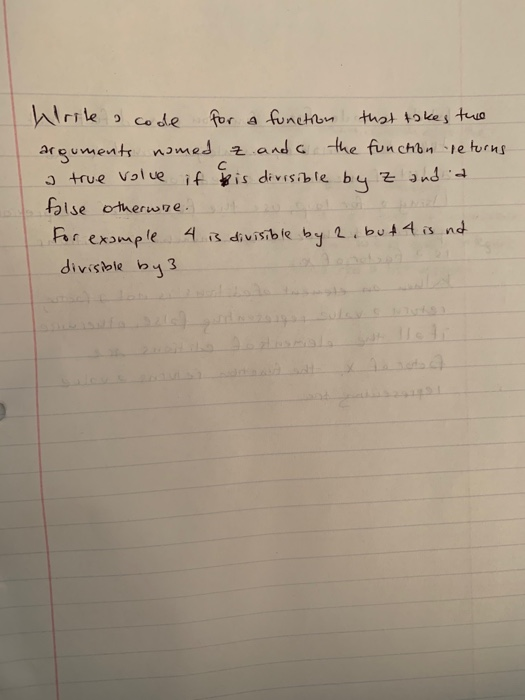 Write a code for a function that takes two
arguments named z and c the function returns
a true value if c is divisible by z and a
false otherwise.
For example 4 is divisible by 2, but 4 is not
divisible by 3